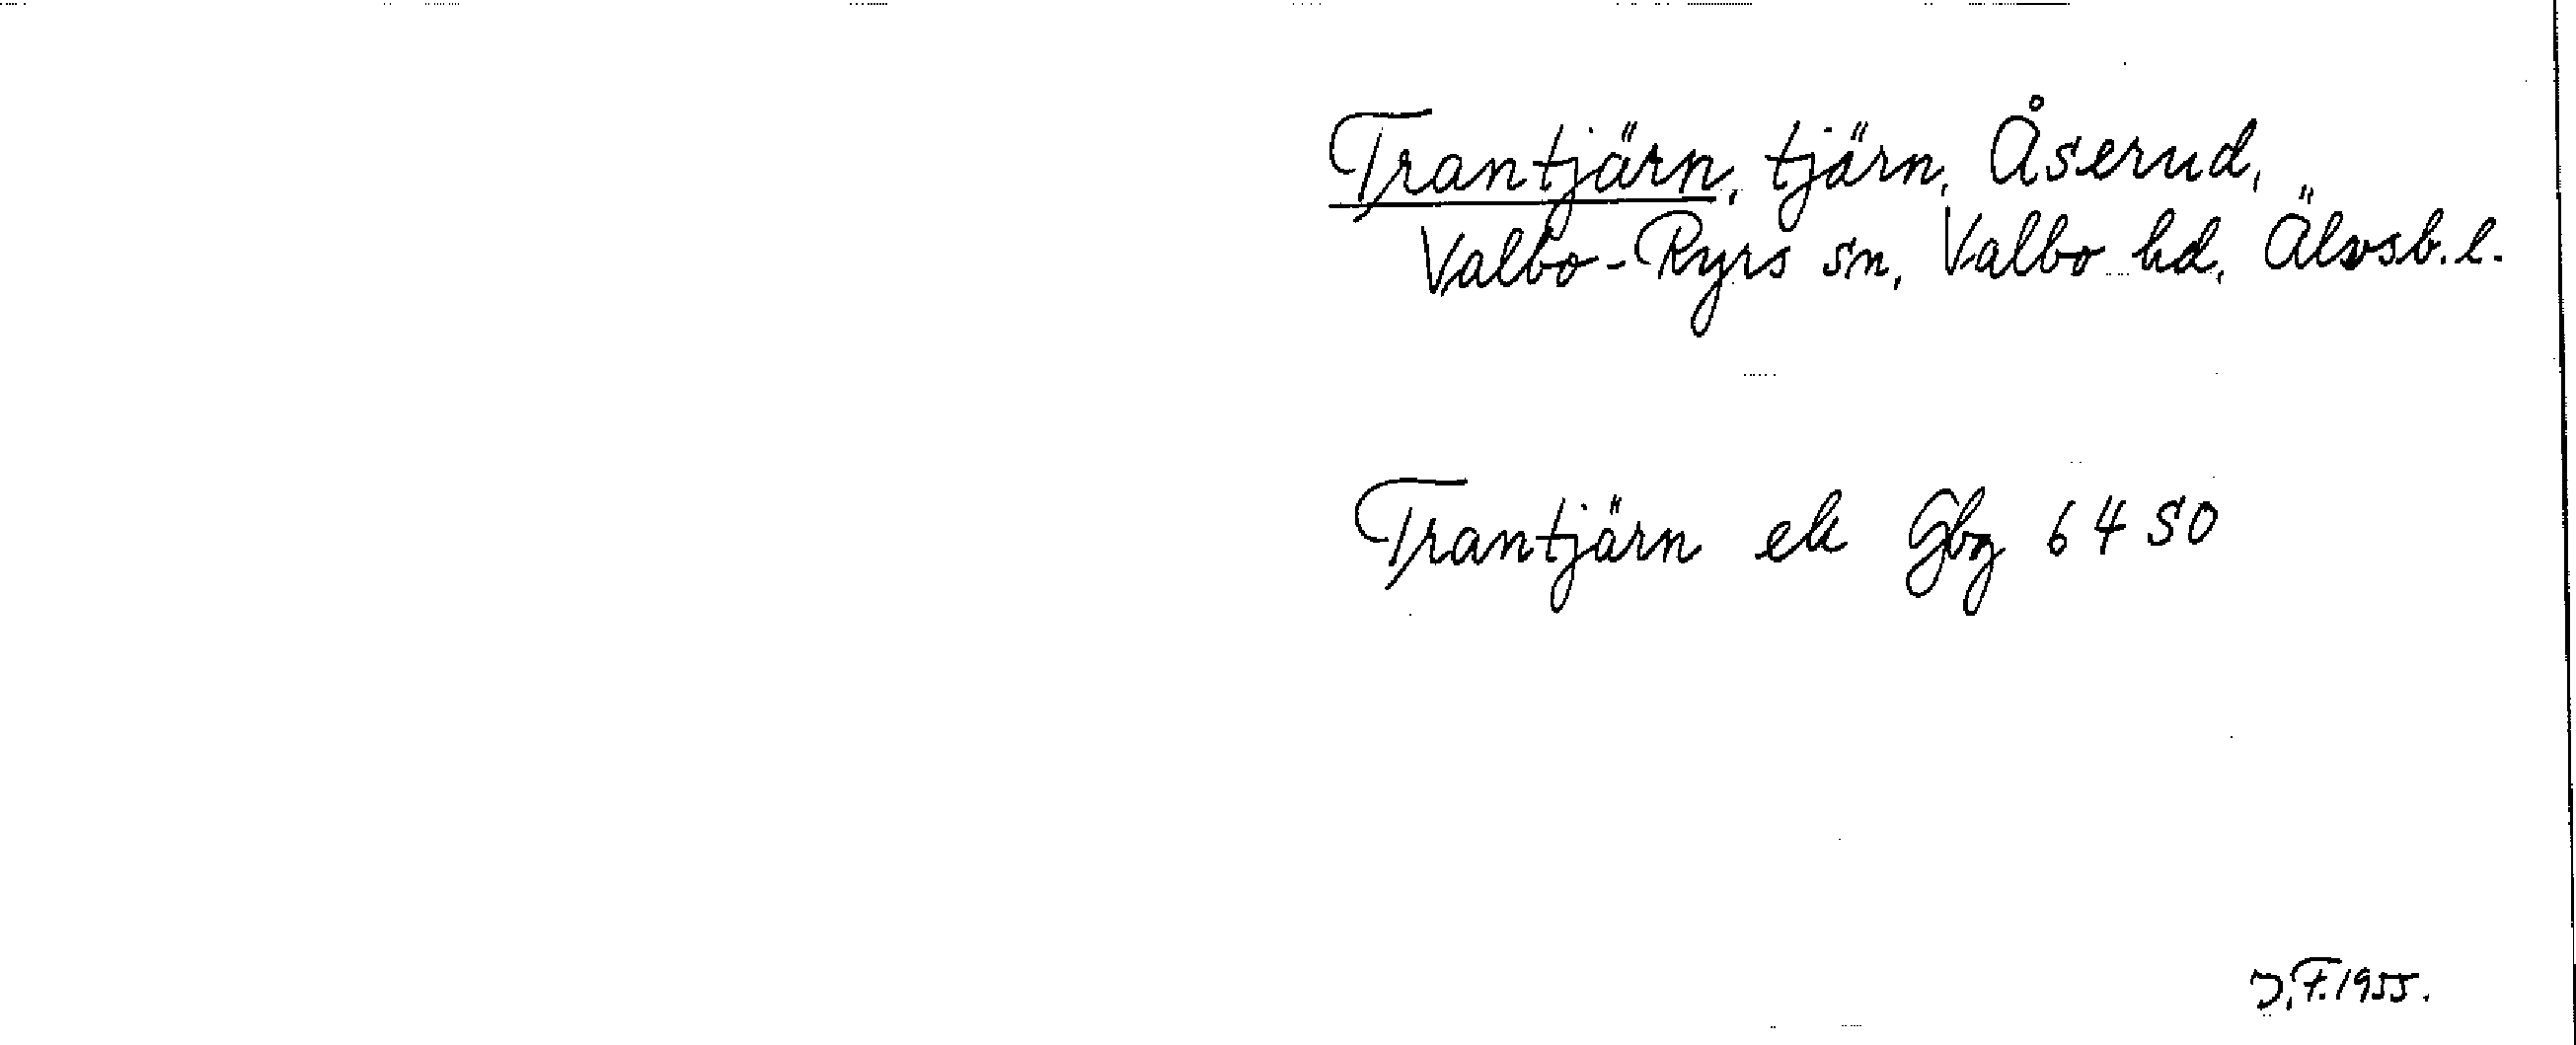 Trantjärn, tjärn, Åserud,
Valbo-Ryrs sn, Valbo hd, Älvsb. l.
Trantjärn ek Gbg 6450
J.F. 1955.